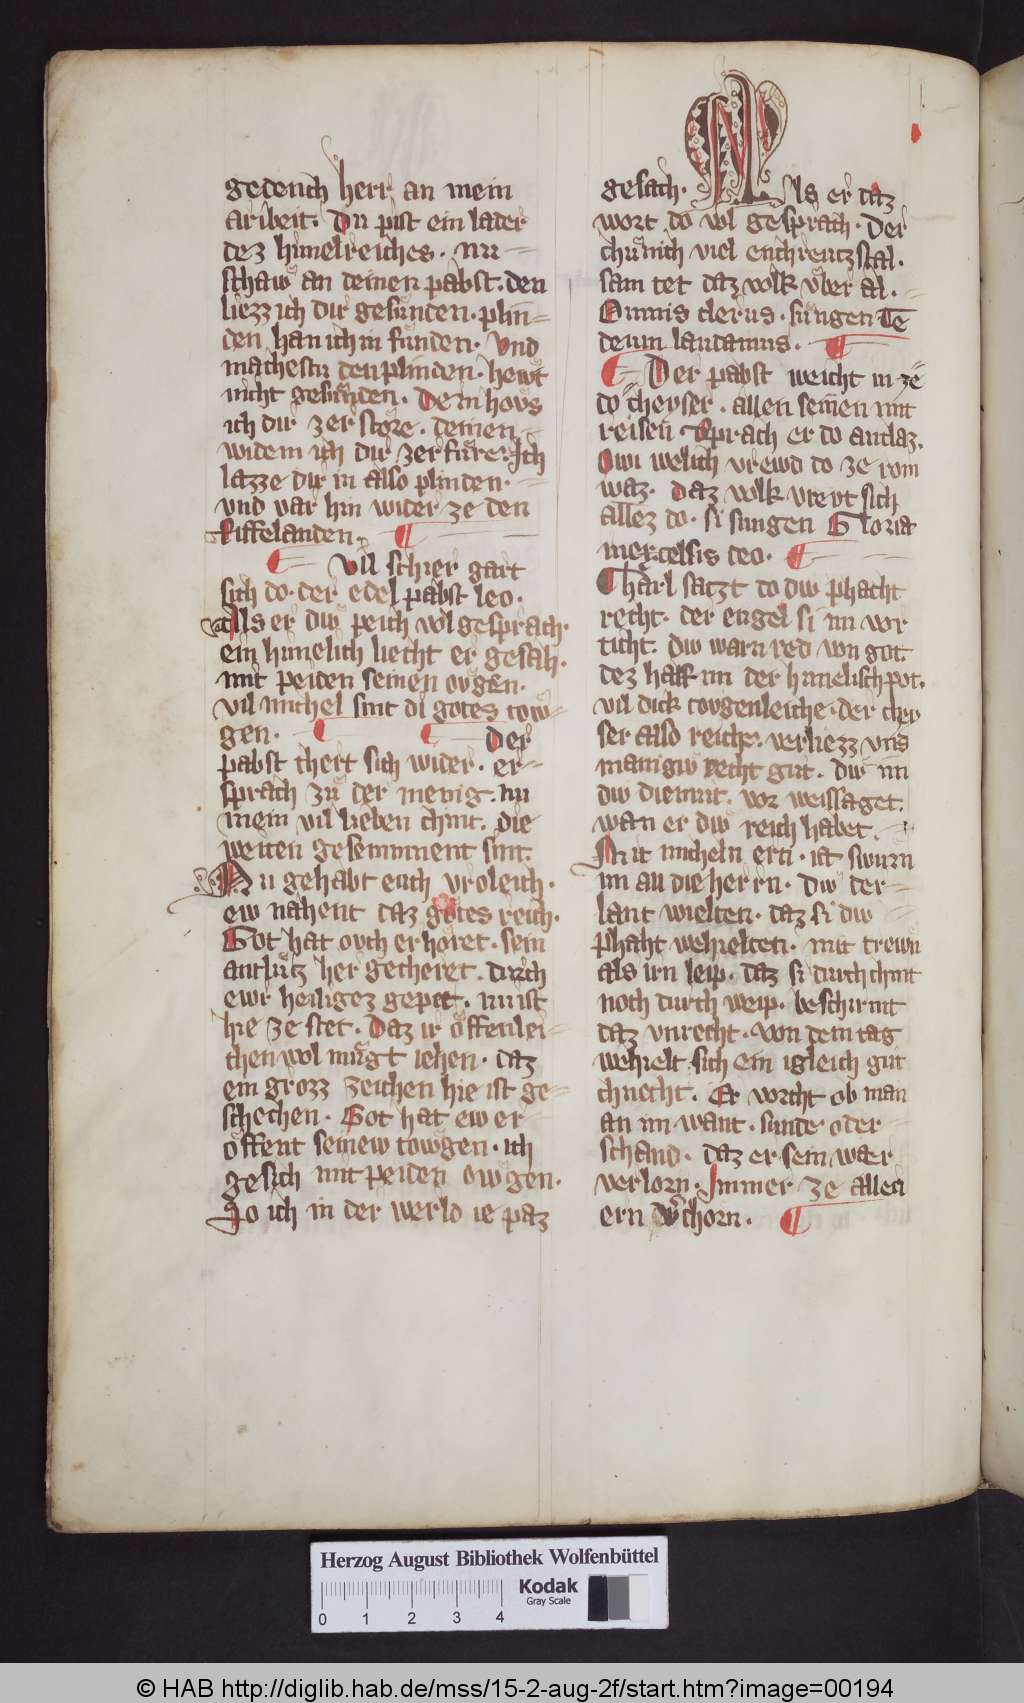 gedench herr an mein
aribeit. Du pist ein lader
dez himelreiches. nu
schaw an deinen pabst. den
liezz ich dir gesunden. plin
den han ich in funden. Vnd
machestu den plinden. hewt
nicht gesunden. Dein hous
ich dir zerstore. deinen
widem ich dir zerfure. Ich
lazze dir in also plinden.
vnd var hin wider ze den
Riffelanden.
Vil schier gart
sich do. der edel pabst leo.
Als er diw peich vol gesprach.
ein himelich liecht er gesah.
mit peiden seinen ougen.
vil michel sint di gotes tow
gen. Der
pabst chert sich wider. er
sprach zu der menig. nu
mein vil lieben chint. die
weiten gesemment sint.
Nu gehabt euch vroleich.
ew nahent daz gotes reich.
Got hat ouch erhoret. sein
antlutz her gecheret. durch
ewr heiligez gepet. nu ist
hie ze stet. Daz ir offenlei
chen wol mugt iehen. daz
ein grozz zeichen hie ist ge
schechen. Got hat ew er
offent seinew towgen. ich
gesich mit peiden owgen.
So ich in der werld ie paz
gesach. Als er daz
wort do vol gesprach. Der
chunich viel enchreutzstal.
sam tet daz volk vber al.
Omnis clerus. sungen Te
deum laudamus.
Der pabst weicht in ze
do cheyser. allen seinen mit
reisen. Sprach er do antlaz.
Owi welich vrewd do ze rom
waz. Daz volk vrevt sich
allez do. si sungen Gloria
in excelsis deo.
Charl satzt do diw phacht
recht. der engel si im vor
ticht. diw warn red von got.
dez half im der himelisch pot.
vil dick tovgenleiche. der chey
ser also reiche. verliezz vns
manigiw recht gut. diw im
diw diemut. vor weissaget.
wan er diw reich habet.
Mit micheln ern. ia swurn
im all die herrn. diw der
lant wielten. daz si diw
phaht wehielten. mit trewn
als irn leip. daz si durch chint
noch durch weip. beschirmt
daz vnrecht. von dem tag
wehielt sich ein igleich gut
chnecht. Er vorcht ob man
an im want. sunde oder
schand. daz er sein waer
verlorn. Immer ze allen
ern v chorn.
Herzog August Bibliothek Wolfenbüttel
0 1 2 3 4
Kodak
Gray Scale
© HAB http://diglib.hab.de/mss/15-2-aug-2f/start.htm?image=00194